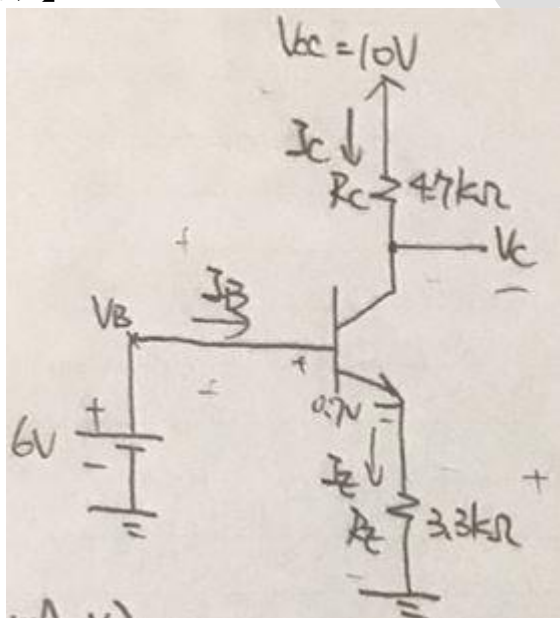 Vcc=10V
Ic
Rc 4.7kΩ
Vc
IB
VB
+
6V
-
0.7V
IE
RE 3.3kΩ